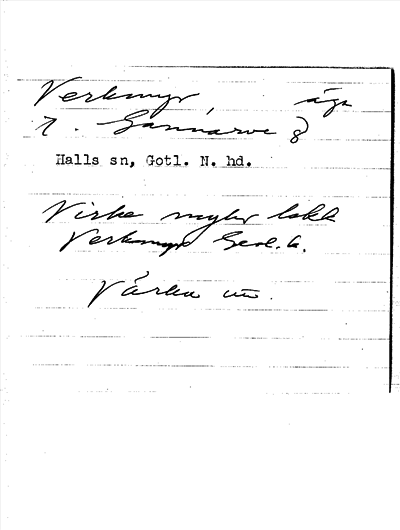 Verkmyr, äga
t. Gannarve 8
Halls sn, Gotl. N. hd.
Virke myhr lokk
Verkmyr Geol. k.
Värka